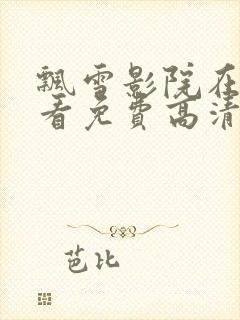 飘雪影院在
看免费高清
芭比